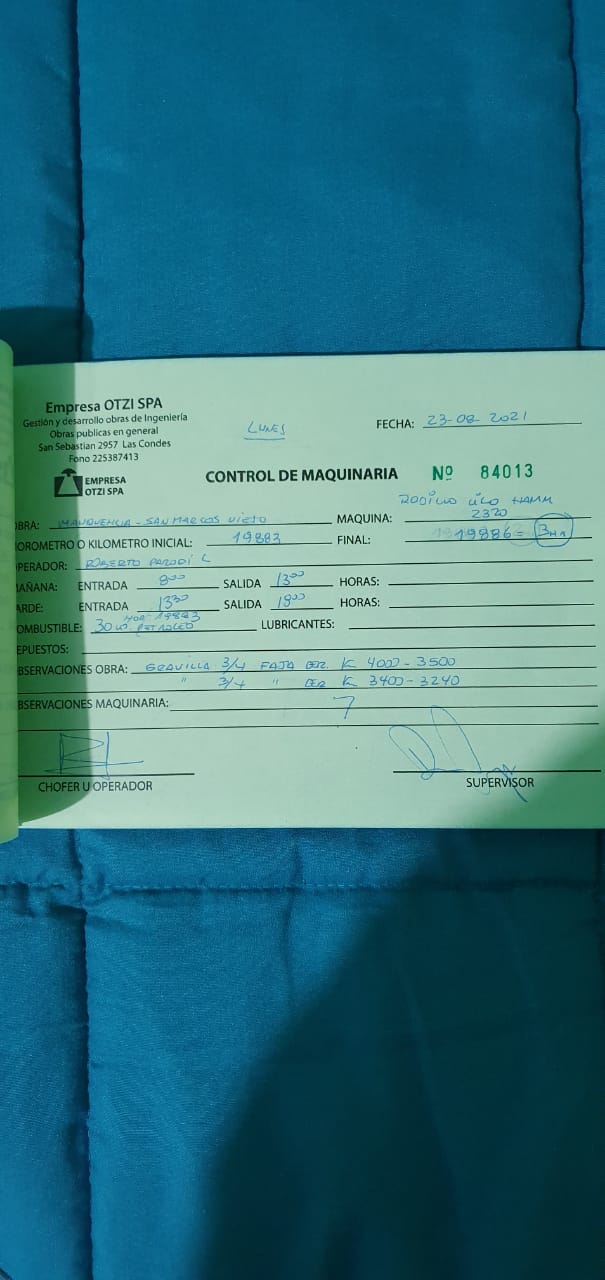 Empresa OTZI SPA
Gestión y desarrollo obras de Ingeniería
Obras publicas en general
San Sebastian 2957 Las Condes
Fono 225387413
EMPRESA
OTZI SPA
LUNES
FECHA: 23-08-2021
CONTROL DE MAQUINARIA Nº 84013
RODILLO LISO HAMM
BRA: - SAN MARCOS VIEJO MAQUINA: 2320
OROMETRO O KILOMETRO INICIAL: 19883 FINAL: 19886 = 3
PERADOR: ROBERTO PARODI L
AÑANA: ENTRADA 800 SALIDA 1300 HORAS:
ARDE: ENTRADA 1330 SALIDA 1800 HORAS:
HOR 19883
OMBUSTIBLE: 30 LTS. PETROLEO LUBRICANTES:
EPUESTOS:
BSERVACIONES OBRA: GRAVILLA 3/4 FAJA DER. K 4000-3500
" 3/4 " DER K 3400-3240
BSERVACIONES MAQUINARIA: 7
CHOFER U OPERADOR
SUPERVISOR